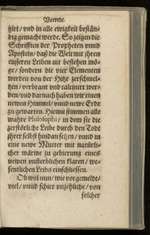 Vorrede.
siret / vnd in alle ewigkeit bestän-
dig gemacht werde. So zeigen die
Schrifften der Propheten vnnd
Aposteln / daß die Welt mit jhren
eusseren Leiben nit bestehen mö-
ge / sondern die vier Elementen
werden von der Hitz zerschmel-
tzen / verbrant vnd calcinirt wer-
den vnd darnach haben wir einen
newen Himmel / vnnd newe Erde
zu gewarten. Hierin stimmen alle
wahre Philosophi / in dem sie die
zerstörliche Leibe durch den Todt
jhrer selbst hindan setzen / vnnd in
eine newe Mutter mit natürli-
cher wärme zu gebierung eines
newen vnsterblichen klaren / we-
sentlichen Leibs einschliessen.
Ob wol nun / wie vorgemeldt /
viel / vnnd schier vnzehliche / von
solcher